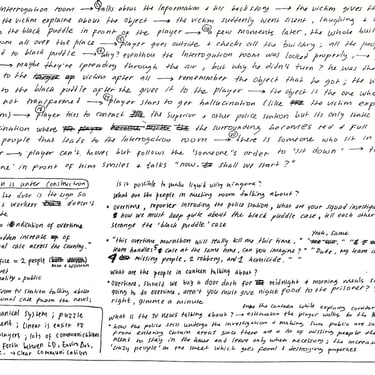 interrogation room → talks about the information & his backstory → the victim gives th
the victim explains about the object → the victim suddenly went silent, laughing &
to the black puddle in front of the player → a few moments later, the whole buil
on all over the place → player goes outside & checks all the building; all the pris
d to black puddle → why? eventhou the interrogation room was locked properly →
→ maybe they're spreading through the air; but why he didn't turn? he was the
to the victim after all → remember the object that he got; the vic
to the black puddle after he gives it to the player → the object is the one who
not transformed → player starts to get hallucination (like the victim exp
m) → player tries to contact the superior & other police station but its only static
cination where the surrounding becomes red & full
people that leads to the interrogation room → there is someone who sit in
r → player can't move but follows the 'someone's order to 'sit down' →
one' in front of him smiles & talks "now.. shall we start?"
on is under construction
the door is the sign so
t workers doesn't
te
= indication of overtime
utter increase of
al case across the country."
fice = 2 people
ality = public
room to station talking about
onal case from the news;
anical system; puzzle
ent; linear is easier to
layers; lots of communication
forth between LD, Enviro Des,
→ clear communication
Is it possible to make liquid using niagara?
What are the people in meeting room talking about?
• overtime, reporter intruding the police station, what are your squad investiga
& how we must keep quite about the black puddle case, all each other
strange the 'black puddle' case
Yeah, same.
• "this overtime marathon will really kill me this time."
team handles 5 case at the same time, can you imagine?" "Dude, my team is
4 missing people, 2 robbery, and 1 homicide."
What are the people in canteen talking about?
• overtime, should we buy a door dash for midnight & morning meals s
going to do overtime, aren't you must give night food to the prisoner?
right, gimme a minute
from the canteen while exploring corridor
What is the tv news talking about? → estimation the player walks to the
• how the police still undergo the investigation & making sure public are sa
from entering certain areas since there are a lot of missing people the
ment to stay in the house and leave only when necessary; the increase
'crazy people' on the street which goes feral & destroying properties